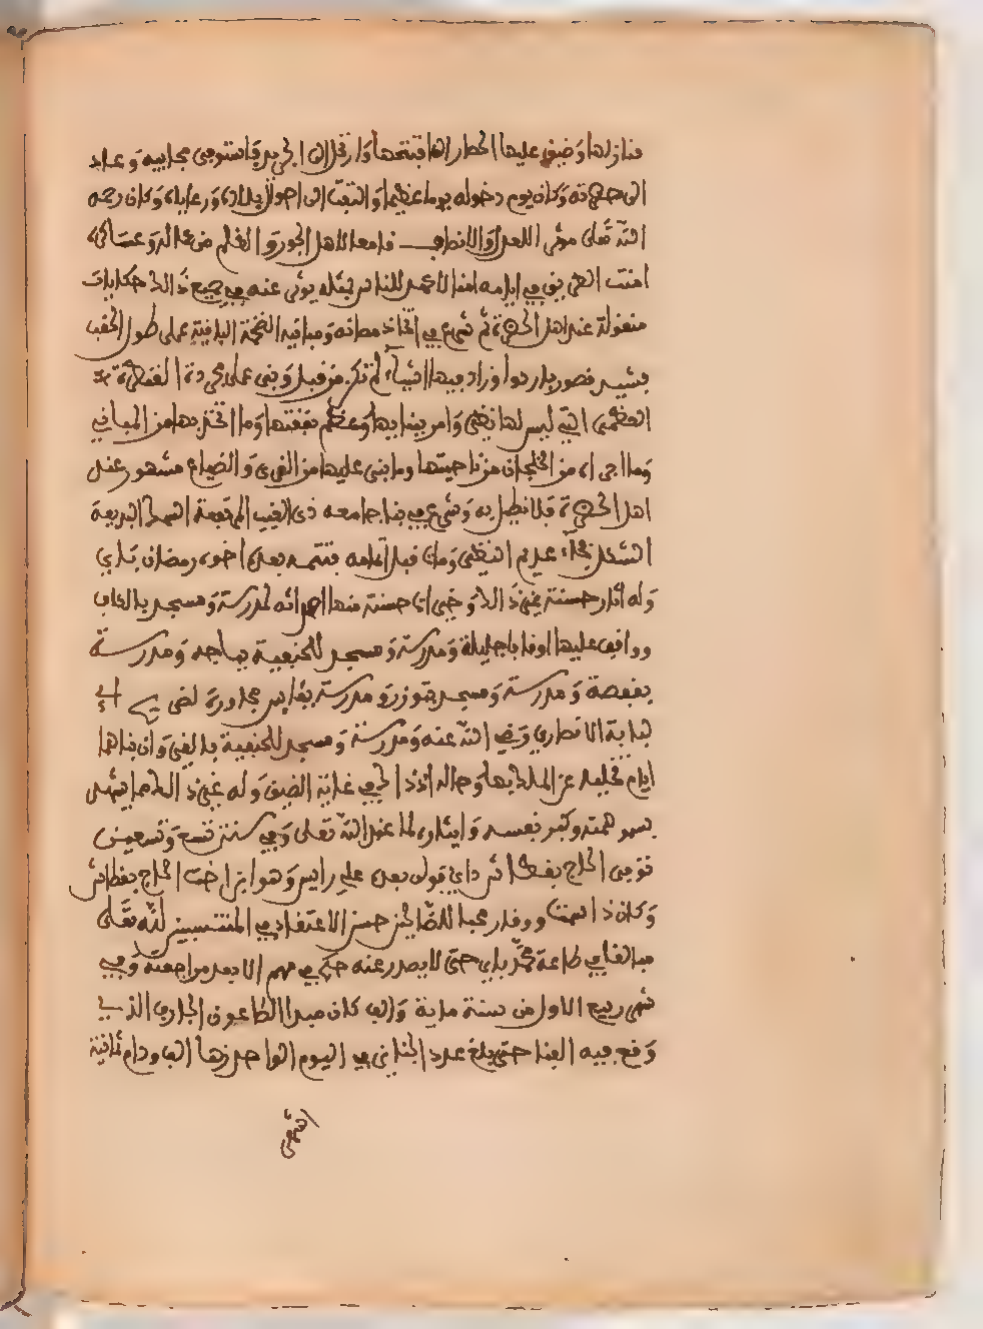 فنازلها وضيق عليها الحصار الى ان افتتحها وارتحل الى الجريد فاستوفى مجابيه وعاد
الى حضرته وكان يوم دخوله يوما عظيما والتفت الى احوال بلاده ورعاياه وكان رحمه
الله تعالى موثر اللعدل والانصاف قامعا لاهل الجور والظلم من عماله وعساكره
امنت الطريق في ايامه امنا لا عهد للناس بمثله يوثر عنه في جميع ذالك حكايات
منقولة عند اهل الحضرة ثم شرع في اتخاذ مصانعه ومبانيه الضخمة الباقية على طول الحقب
بشيد قصور باردوا وزاد فيها اشياء لم تكن من قبل وبنى على مجردة القنطرة
العظمى التي ليس لها نظير وامر بنايها وعظم نفقتها وما اتخذ بها من المباني
وما اجراه من الخلجان من ناحيتها وما بنى عليها من القرى والضياع مشهور عند
اهل الحضرة فلا نطيل به وشرع في بناء جامعه ذي القبب المرتفعة السمك البديعة
الشكل فجاء عديم النظير ومات قبل اتمامه فتممه بعده اخوه رمضان باي
وله اثار حسنة غير ذالك وخيرات حسنة منها احداثه لمدرسة ومسجد بالكاف
وواقف عليها اوقافا جليلة ومدرسة ومسجد للحنفية بباجه ومدرسة
بقفصة ومدرسة ومسجد بتوزر ومدرسة بقابس مجاورة لضريح ابي
لبابة الانصاري رضي الله عنه ومدرسة ومسجد للحنفية بالقيروان بناهما
ايام تخليه عن الملك بها وحاله اذ ذاك في غاية الضيق وله غير ذالك مما يشهد
بسمو همته وكبر نفسه وايثاره لما عند الله تعالى وفي سنة تسع وتسعين
توفى الحاج بقطاش داي فولى بعده علي رايس وهو ابن اخت الحاج بقطاش
وكان ذا سمت ووقار محبا للصالحين حسن الاعتقاد في المنتسبين لله تعالى
مبالغا في طاعة محمد باي حتى لا يصدر عنه حكم في مهم الا بعد مراجعته وفي
شهر ربيع الاول من سنة ماية والف كان مبدا الطاعون الجارف الذي
وقع فيه الفنا حتى بلغ عدد الجنائز في اليوم الواحد زهاء الف ودام ثمانية
انتهى